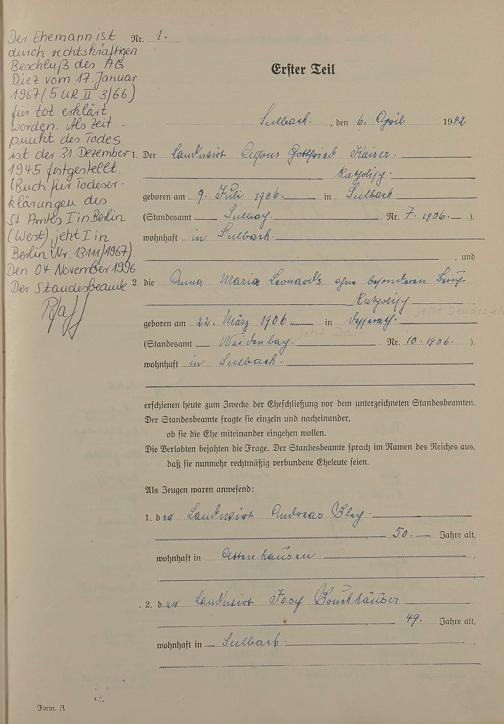 Der Ehemann ist
durch rechtskräftigen
Beschluß des AG
Diez vom 17. Januar
1967 (5 UR II 3/66)
für tot erklärt
worden. Als Zeit-
punkt des Todes
ist der 31. Dezember
1945 festgestellt.
(Buch für Todeser-
klärungen des
St Amtes I in Berlin
(West) jetzt I in
Berlin Nr. 13111/1967)
Den 04 November 1996
Der Standesbeamte
Nr. 1.
Erster Teil
Sulbach, den 6. April 1942
1. Der Landwirt Gottfried Kaiser
Katholisch
geboren am 9. Juli 1906 in Sulbach
(Standesamt Nr. 7. 1906.)
wohnhaft in Sulbach
, und
2. die Anna Maria Leonards, ohne besonderen Beruf
Katholisch
geboren am 22. März 1906 in
(Standesamt Nr. 10. 1906.)
wohnhaft in Sulbach
erschienen heute zum Zwecke der Eheschließung vor dem unterzeichneten Standesbeamten.
Der Standesbeamte fragte sie einzeln und nacheinander,
ob sie die Ehe miteinander eingehen wollen.
Die Verlobten bejahten die Frage. Der Standesbeamte sprach im Namen des Reiches aus,
daß sie nunmehr rechtmäßig verbundene Eheleute seien.
Als Zeugen waren anwesend:
1. der Landwirt Andreas
50. Jahre alt,
wohnhaft in Attenhausen
2. der Landwirt Josef
49. Jahre alt,
wohnhaft in Sulbach
Form. A